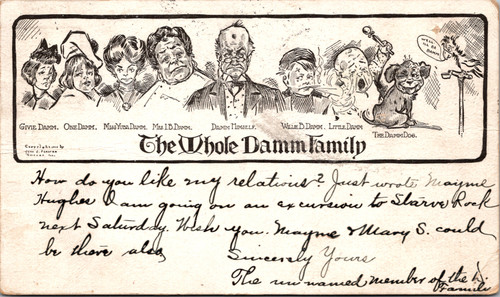 GIVIE DAMM. ONE DAMM. MISS YUBA DAMM. MRS. I.B. DAMM. DAMM HIMSELF. WILLIE B. DAMM. LITTLE DAMM. THE DAMM DOG.
The Whole Damm Family
How do you like my relations? Just wrote Mayme
Hughes I am going on an excursion to Starve Rock
next Saturday. Wish you. Mayme & Mary S. could
be there also
Sincerely Yours
The un named member of the D.
Family